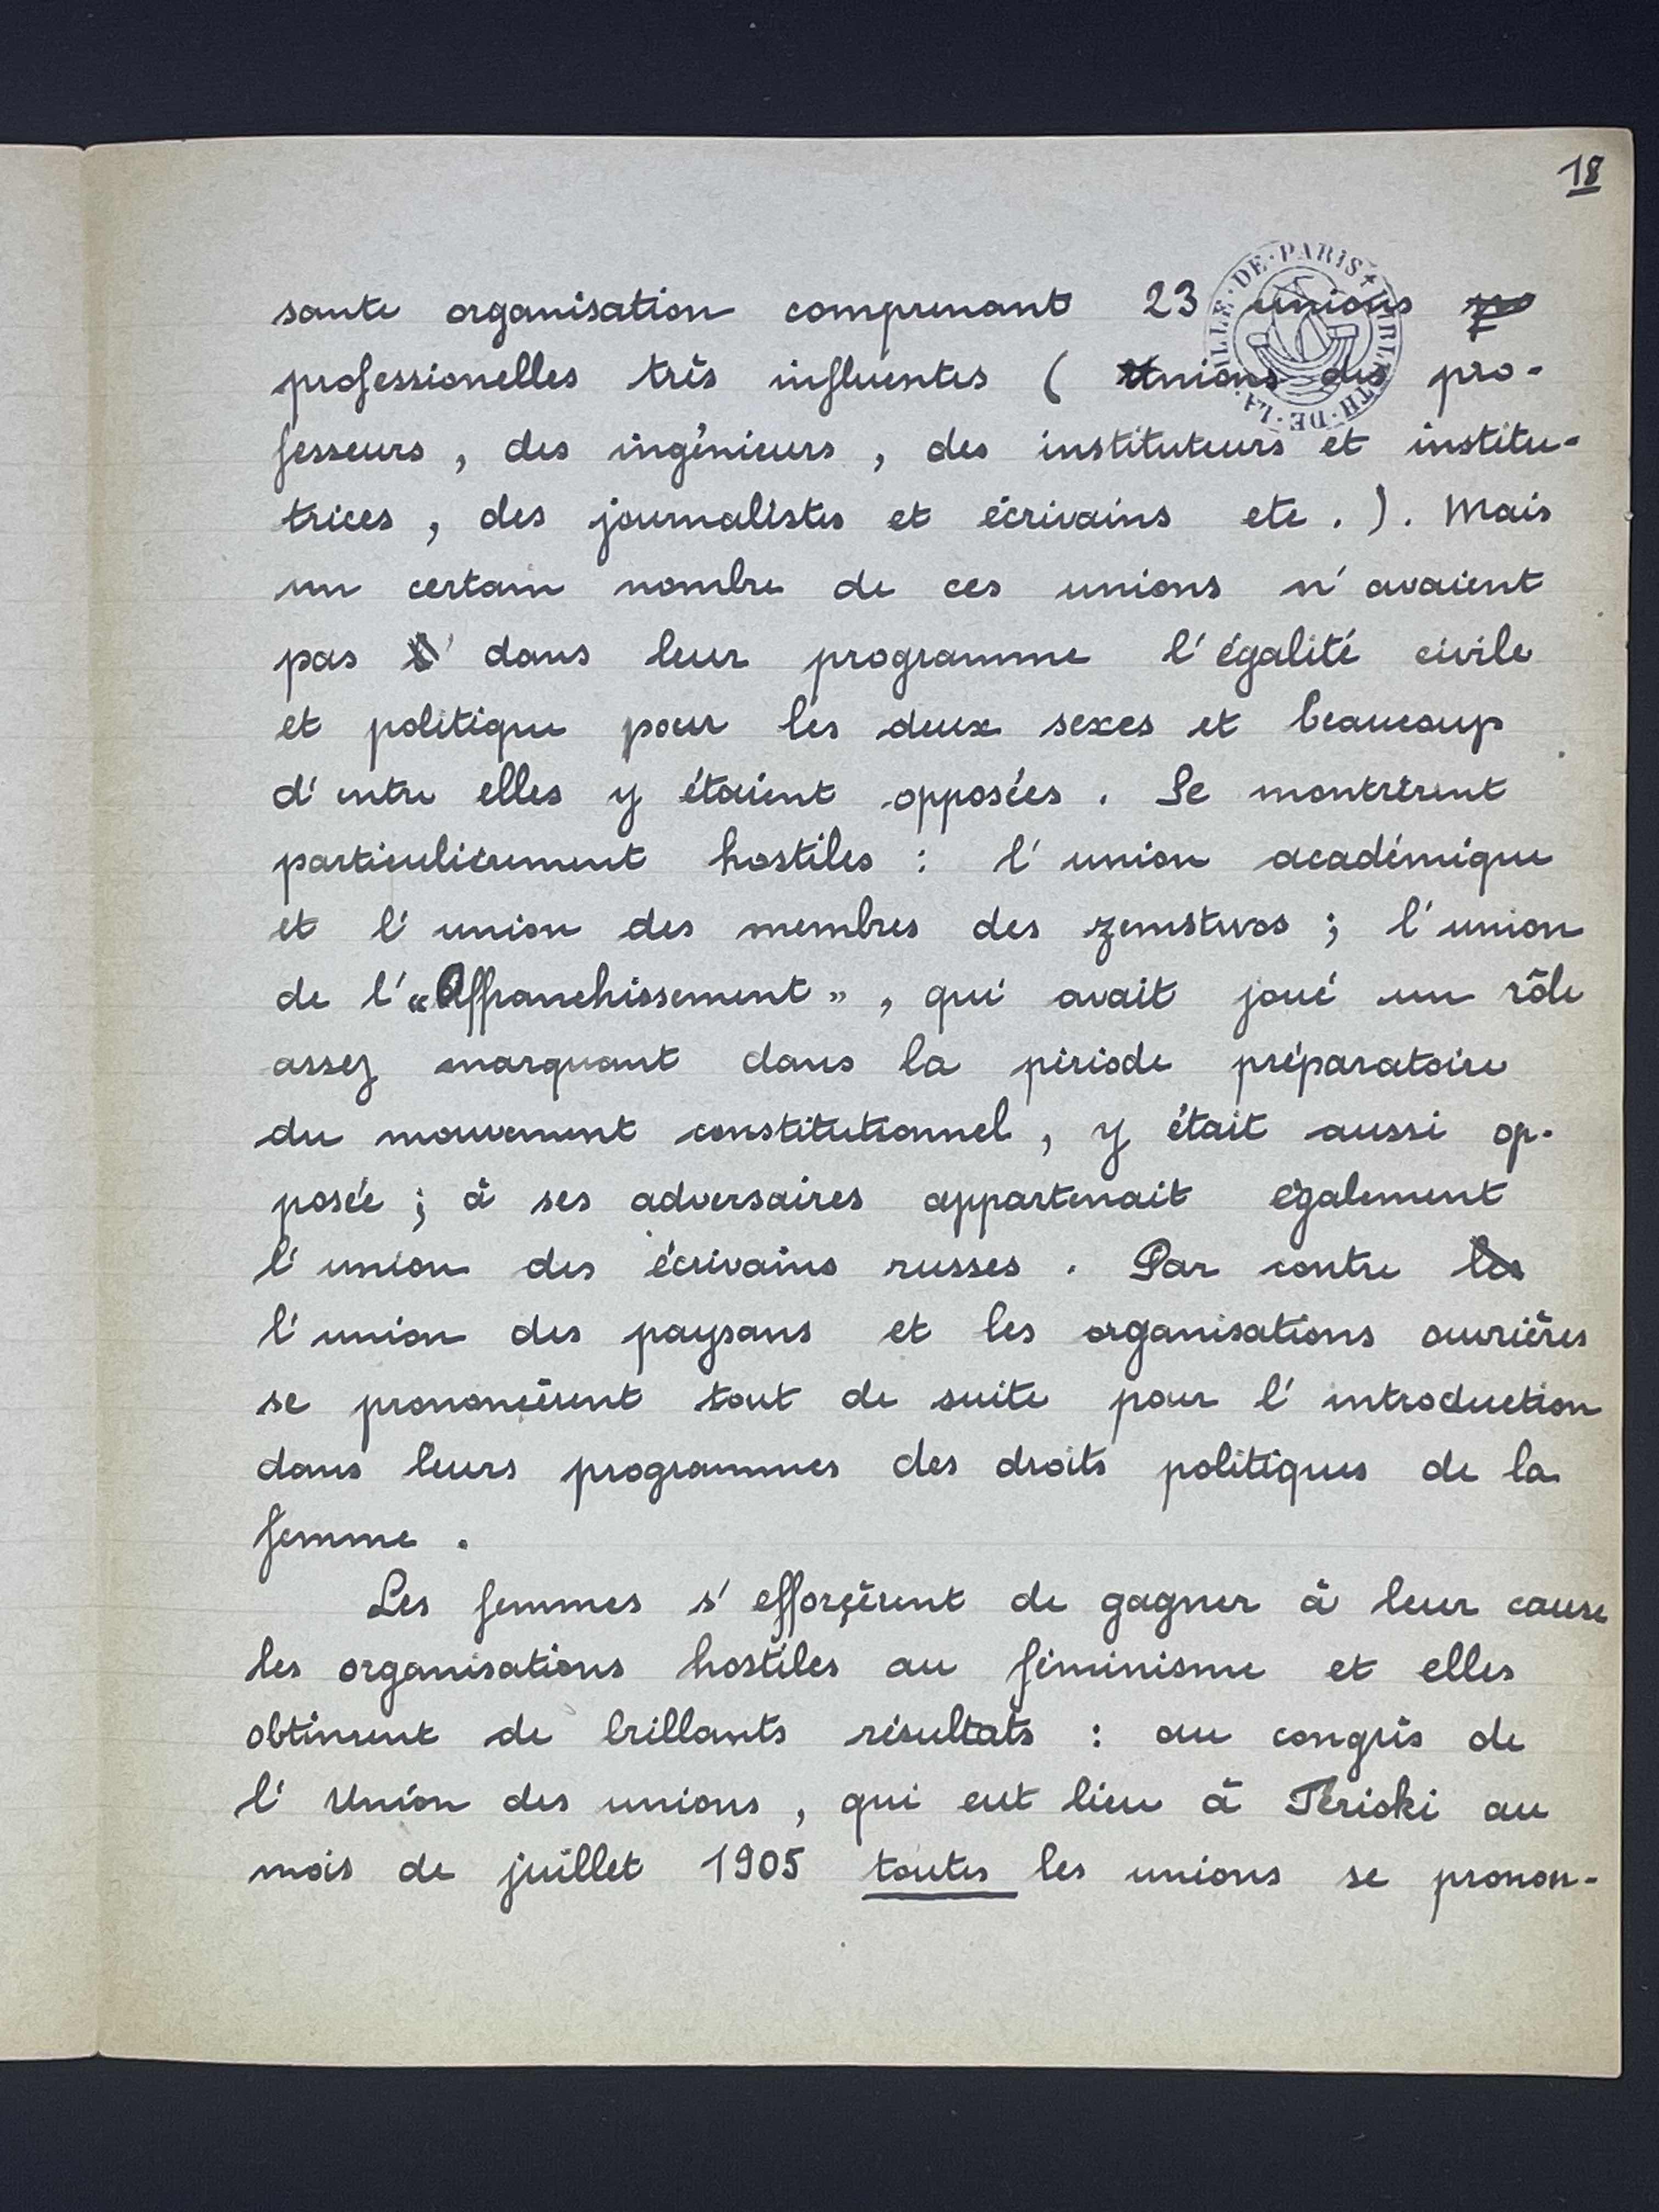 18
sante organisation comprenant 23 unions
professionelles très influentes ( Unions des pro-
fesseurs , des ingénieurs , des instituteurs et institu-
trices , des journalistes et écrivains etc . ) . Mais
un certain nombre de ces unions n' avaient
pas dans leur programme l' égalité civile
et politique pour les deux sexes et beaucoup
d' entre elles y étaient opposées . Se montrèrent
particulièrement hostiles : l' union académique
et l' union des membres des zemstvos ; l' union
de l' « Affranchissement » , qui avait joué un rôle
assez marquant dans la période préparatoire
du mouvement constitutionnel , y était aussi op-
posée ; à ses adversaires appartenait également
l' union des écrivains russes . Par contre les
l' union des paysans et les organisations ouvrières
se prononcèrent tout de suite pour l' introduction
dans leurs programmes des droits politiques de la
femme .
Les femmes s' efforçèrent de gagner à leur cause
les organisations hostiles au féminisme et elles
obtinrent de brillants résultats : au congrès de
l' Union des unions , qui eut lieu à Térioki au
mois de juillet 1905 toutes les unions se pronon-